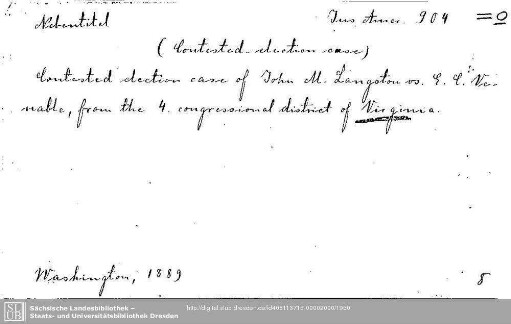 Nebentitel
Jus Amer. 904 =0
(Contested election case)
Contested election case of John M. Langston vs. E. C. Ve-
nable, from the 4. congressional district of Virginia.
Washington, 1889
8
SLUB
Sächsische Landesbibliothek –
Staats- und Universitätsbibliothek Dresden